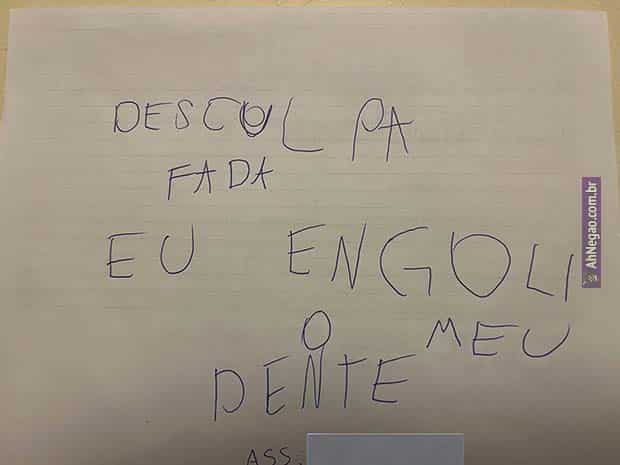 DESCULPA
FADA
EU ENGOLI
O MEU
DENTE
ASS.
AhNegao.com.br